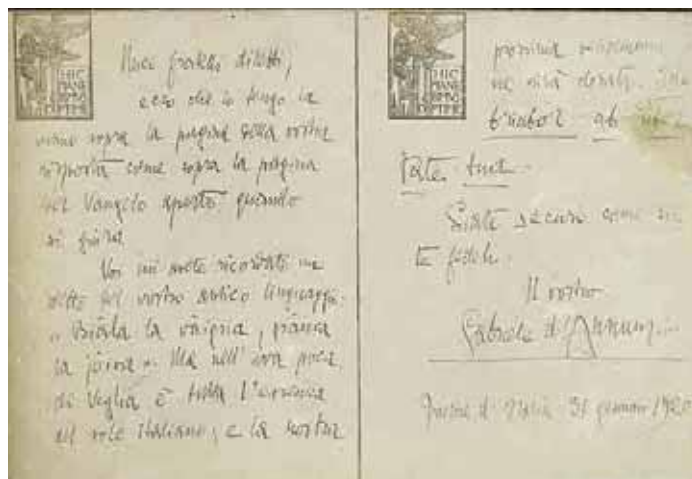 HIC
MANE
BIMUS
OPTIME
Miei fratelli diletti,
ecco che io tengo la
mano sopra la pagina della vostra
risposta come sopra la pagina
del Vangelo aperto quando
si giura
Voi mi avete ricordato un
detto del vostro antico linguaggio.
la vaigna, pianta
la joina". Ma nell'
di Veglia è tutta l'essenza
del sole italiano; e la vostra
HIC
MANE
BIMUS
OPTIME
prossima
ne sarà
ab
Siate sicuri come
te fedeli.
Il vostro
Gabriele d'Annunzio
d'Italia 31 gennaio 1920